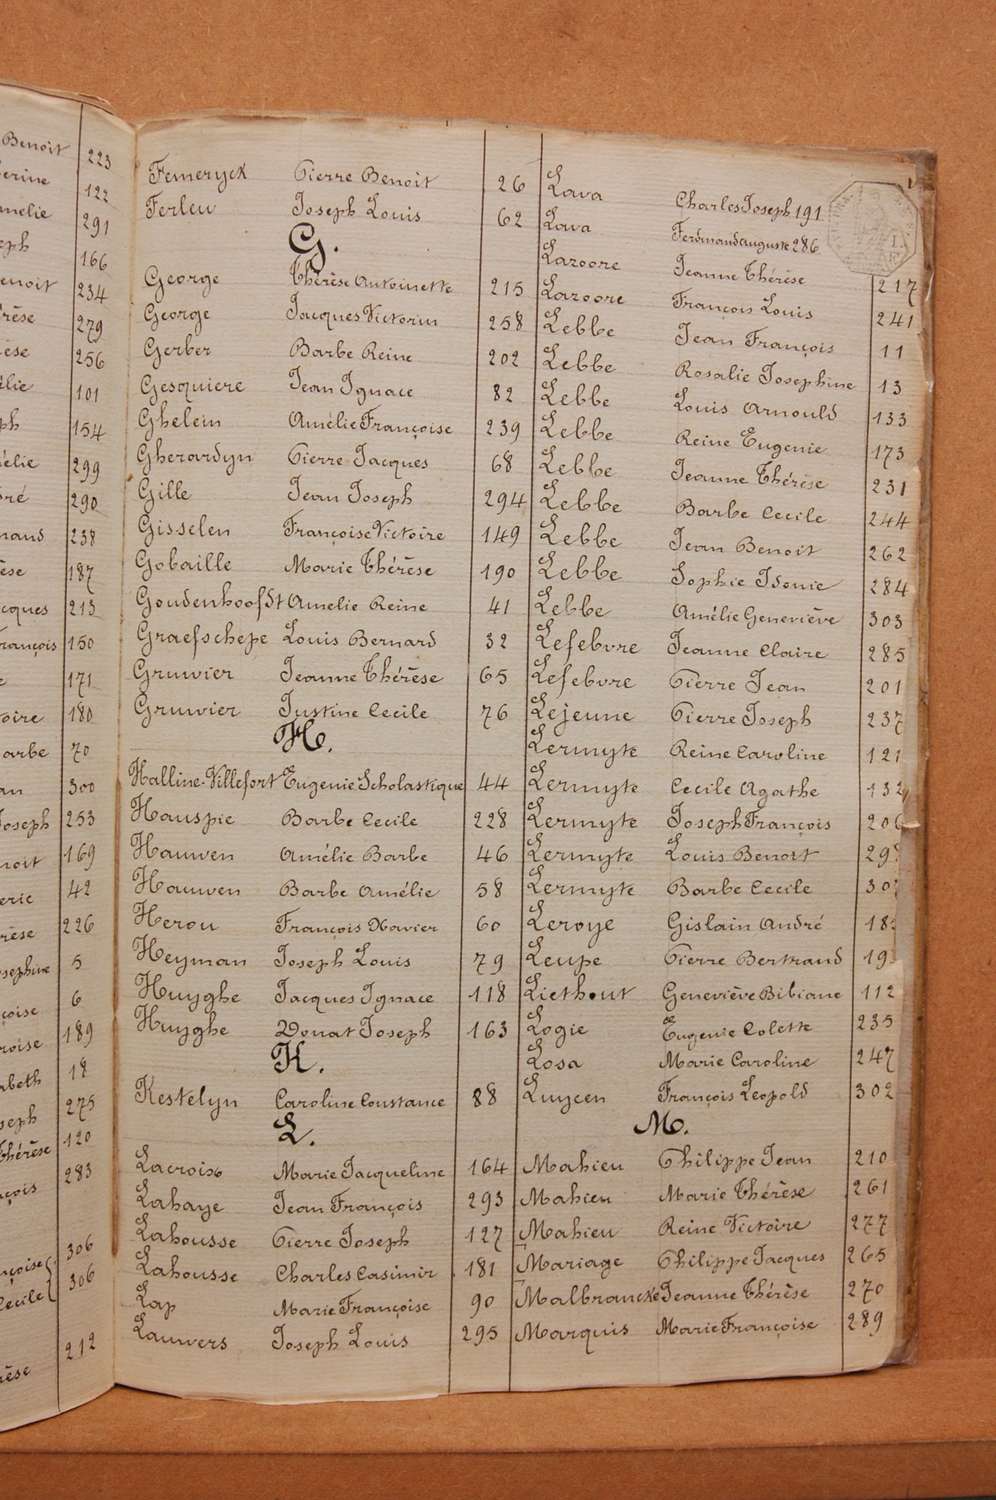 Benoit 223
erine 122
amelie 291
eph 166
enoit 234
rèse 279
èse 256
élie 101
ph 154
élie 299
ré 290
nand 238
èse 187
acques 213
rançois 150
e 171
toire 180
arbe 70
an 300
Joseph 253
noit 169
erie 42
rèse 226
osephine 5
çoise 6
çoise 189
abeth 18
seph 275
Thérèse 120
nçois 283
nçoise 306
Cecile 306
212
rèse
Femeryck Pierre Benoit 26
Ferleu Joseph Louis 62
G.
George Thérèse Antoinette 215
George Jacques Victorin 258
Gerber Barbe Reine 202
Gesquiere Jean Ignace 82
Ghelein Amélie Françoise 239
Gherardyn Pierre Jacques 68
Gille Jean Joseph 294
Gisselen Françoise Victoire 149
Gobaille Marie Thérèse 190
Goudenhoofdt Amelie Reine 41
Graefschepe Louis Bernard 32
Gruwier Jeanne Thérèse 65
Gruwier Justine Cecile 76
H.
Halline-Villefort Eugenie Scholastique 44
Hauspie Barbe Cecile 228
Hauwen Amélie Barbe 46
Hauwen Barbe Amélie 58
Herou François Xavier 60
Heyman Joseph Louis 79
Huyghe Jacques Ignace 118
Huyghe Donat Joseph 163
K.
Kestelyn Caroline Constance 88
L.
Lacroix Marie Jacqueline 164
Lahaye Jean François 293
Lahousse Pierre Joseph 127
Lahousse Charles Casimir 181
Lap Marie Françoise 90
Lauwers Joseph Louis 295
Lava Charles Joseph 191
Lava Ferdinand Auguste 286
Lazoore Jeanne Thérèse 217
Lazoore François Louis 241
Lebbe Jean François 11
Lebbe Rosalie Josephine 13
Lebbe Louis Arnould 133
Lebbe Reine Eugenie 173
Lebbe Jeanne Thérèse 231
Lebbe Barbe Cecile 244
Lebbe Jean Benoit 262
Lebbe Sophie Idonie 284
Lebbe Amélie Geneviève 303
Lefebvre Jeanne Claire 285
Lefebvre Pierre Jean 201
Lejeune Pierre Joseph 237
Lermyte Reine Caroline 121
Lermyte Cecile Agathe 132
Lermyte Joseph François 206
Lermyte Louis Benoit 29
Lermyte Barbe Cecile 30
Leroye Gislain André 18
Leupe Pierre Bertrand 19
Liethout Geneviève Bibiane 112
Logie Eugenie Colette 235
Losa Marie Caroline 247
Luycen François Leopold 302
M.
Mahieu Philippe Jean 210
Mahieu Marie Thérèse 261
Mahieu Reine Victoire 277
Mariage Philippe Jacques 265
Malbrancke Jeanne Thérèse 270
Marquis Marie Françoise 289